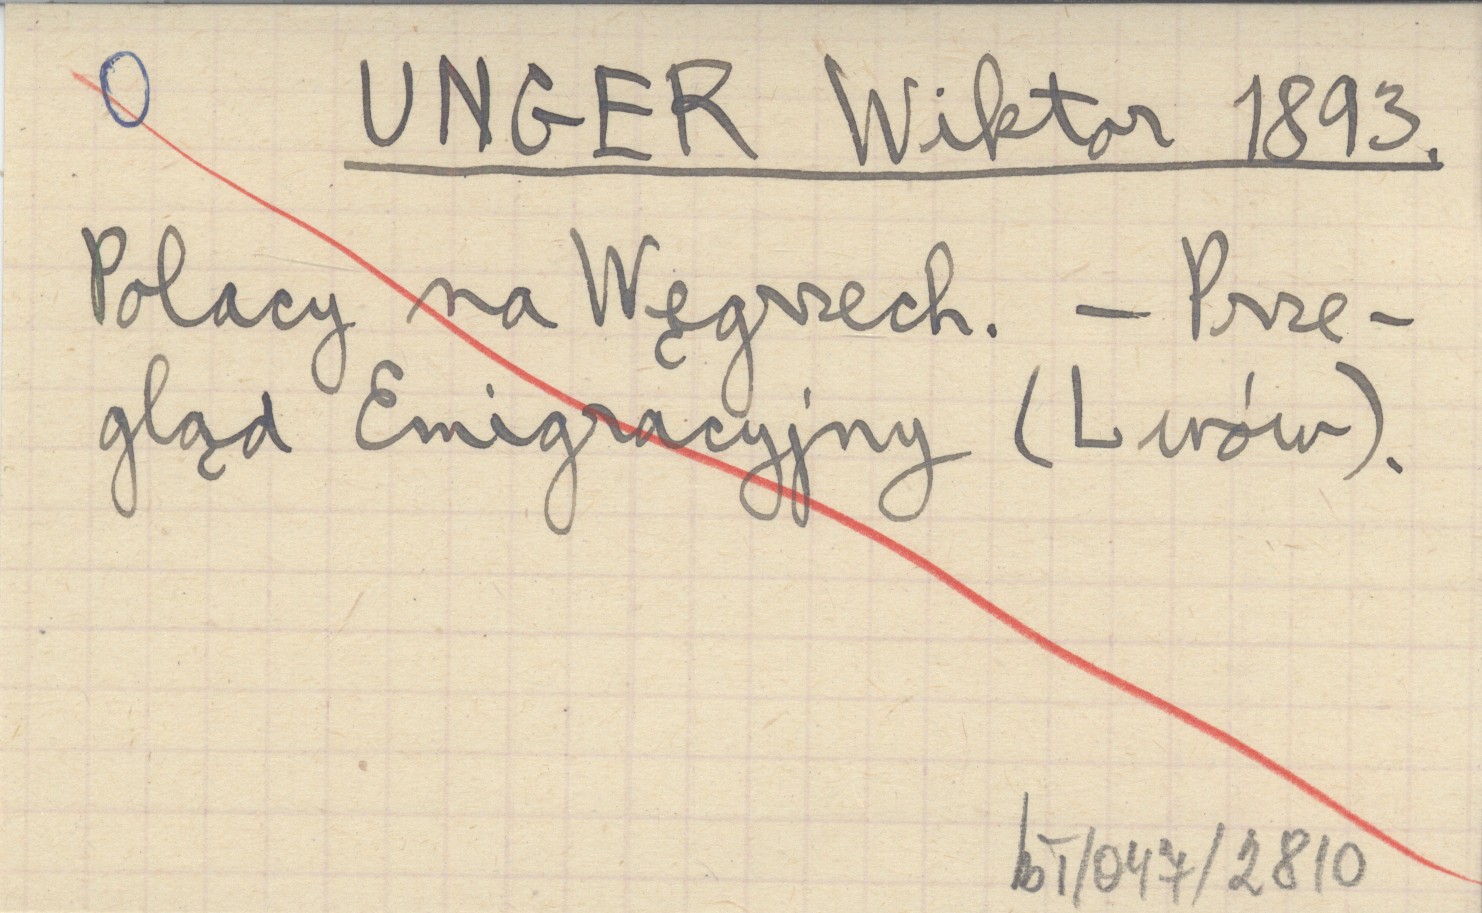 O UNGER Wiktor 1893.
Polacy na Węgrzech. – Prze-
gląd Emigracyjny (Lwów).
bI/047/2810